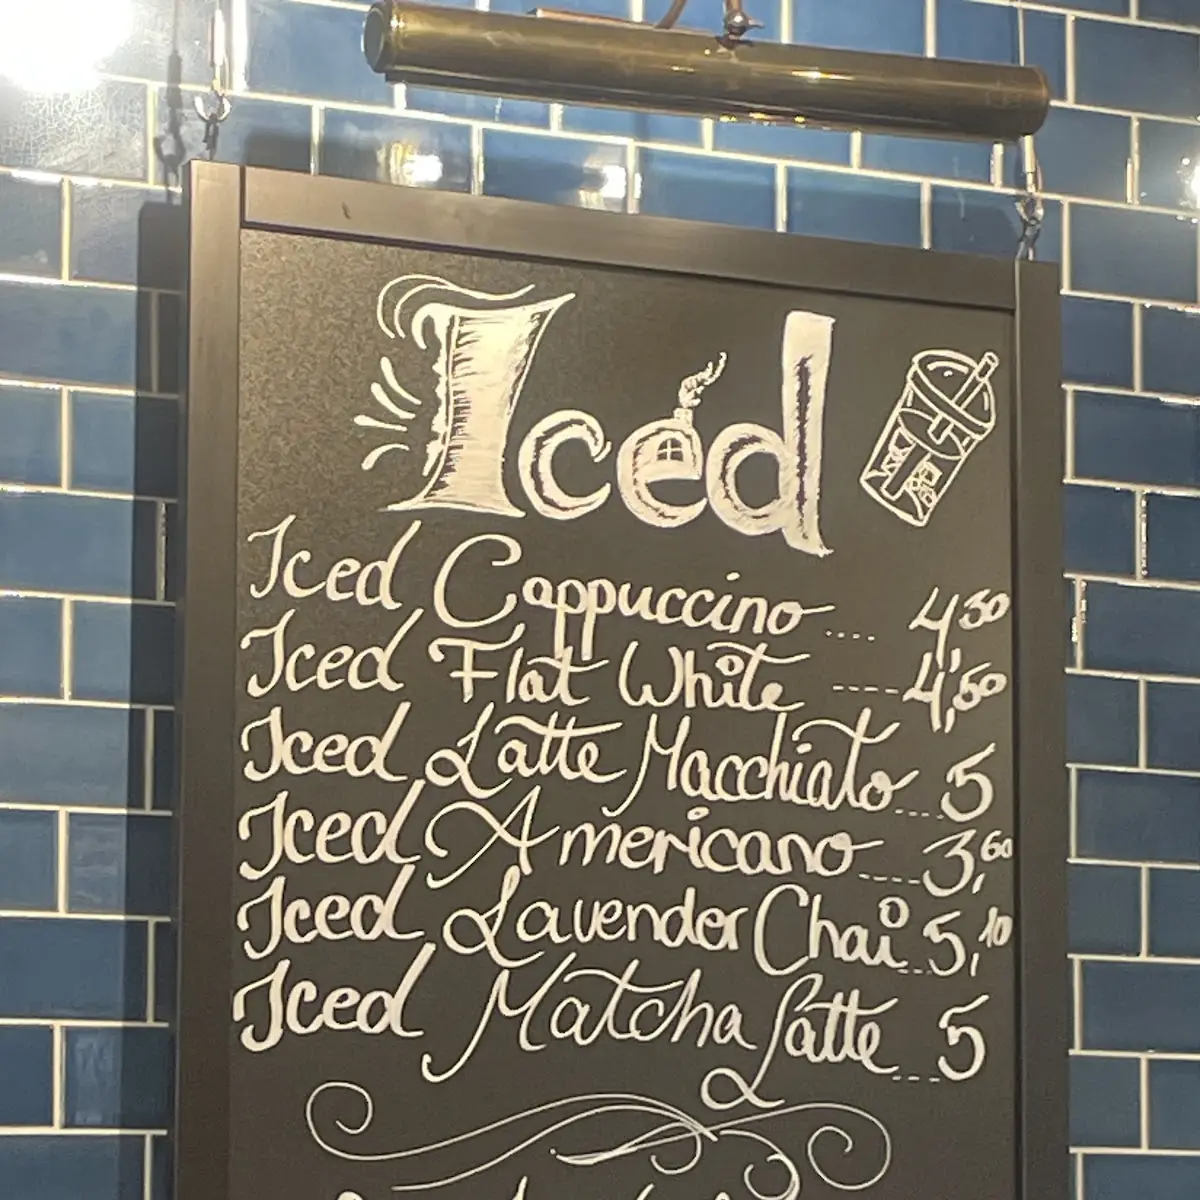 Iced
Iced Cappuccino .... 4,30
Iced Flat White ---- 4,50
Iced Latte Macchiato ... 5
Iced Americano .... 3,60
Iced Lavender Chai ... 5,10
Iced Matcha Latte ... 5